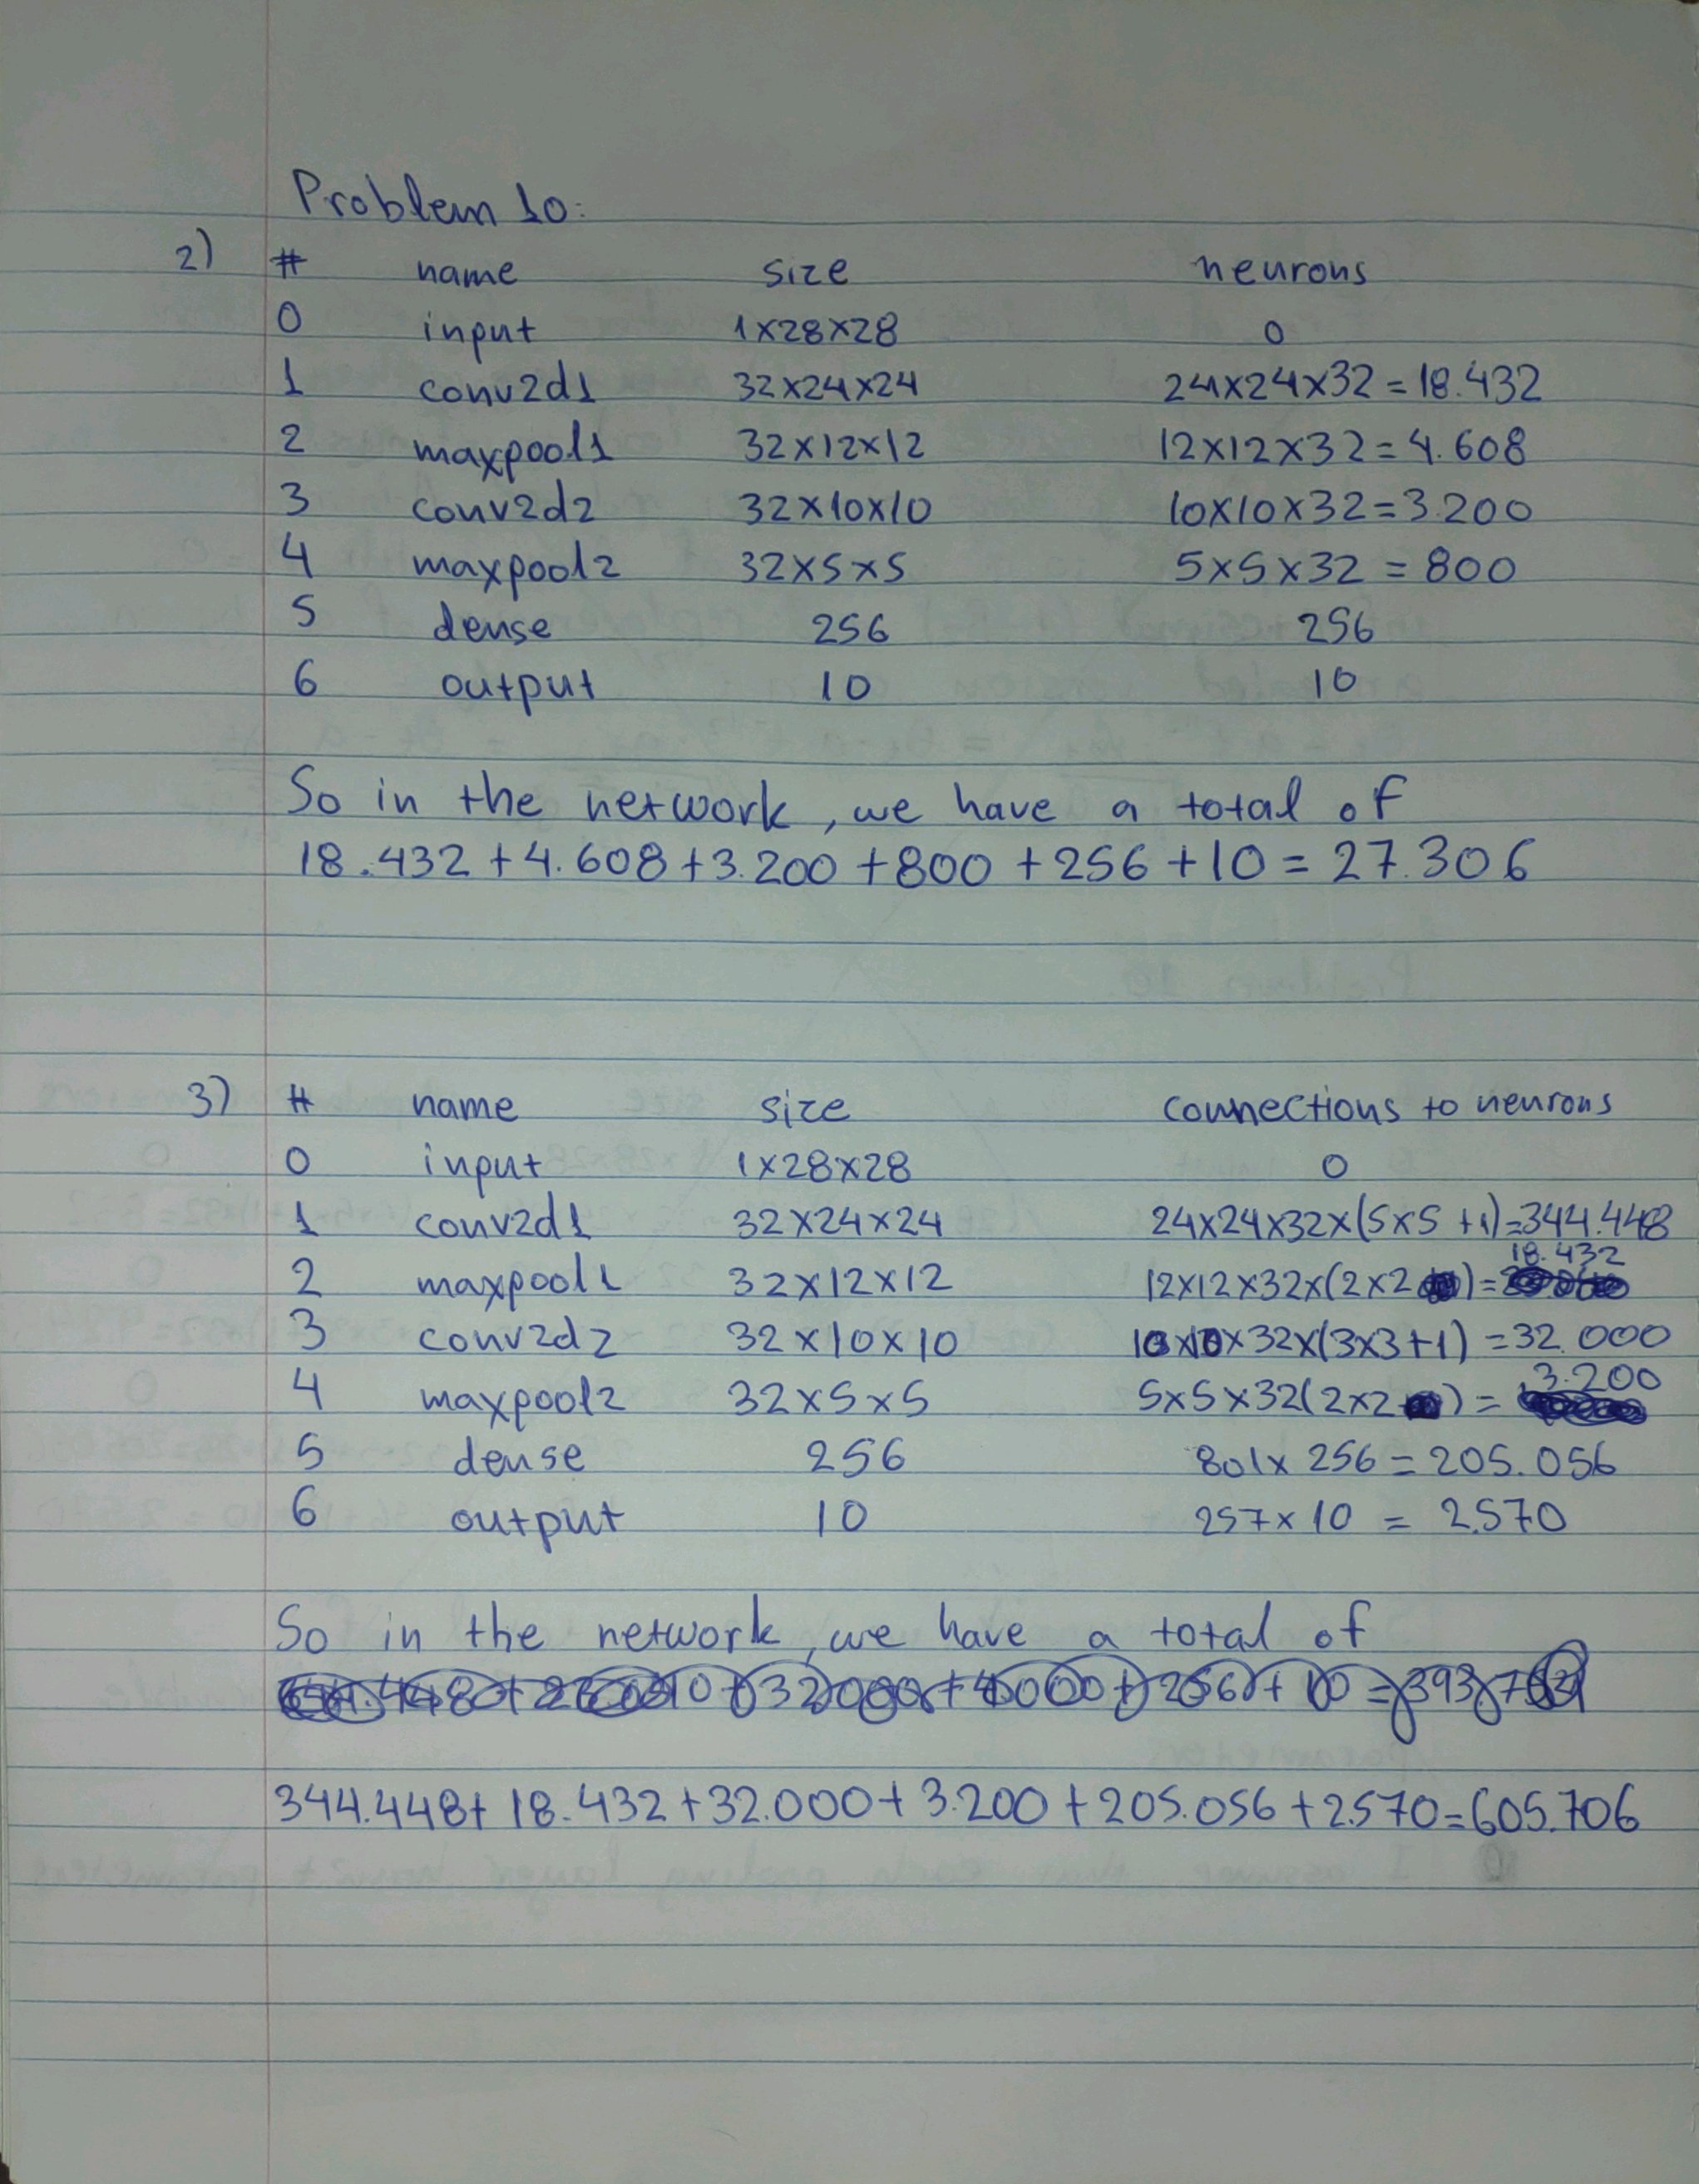 Problem 10:
2) # name size neurons
0 input 1x28x28 0
1 conv2d1 32x24x24 24x24x32=18.432
2 maxpool1 32x12x12 12x12x32=4.608
3 conv2d2 32x10x10 10x10x32=3.200
4 maxpool2 32x5x5 5x5x32=800
5 dense 256 256
6 output 10 10
So in the network, we have a total of
18.432+4.608+3.200+800+256+10=27.306
3) # name size connections to neurons
0 input 1x28x28 0
1 conv2d1 32x24x24 24x24x32x(5x5+1)=344.448
2 maxpool1 32x12x12 12x12x32x(2x2)=18.432
3 conv2d2 32x10x10 10x10x32x(3x3+1)=32.000
4 maxpool2 32x5x5 5x5x32(2x2)=3.200
5 dense 256 801x256=205.056
6 output 10 257x10=2.570
So in the network, we have a total of
344.448+18.432+32.000+3.200+205.056+2.570=605.706